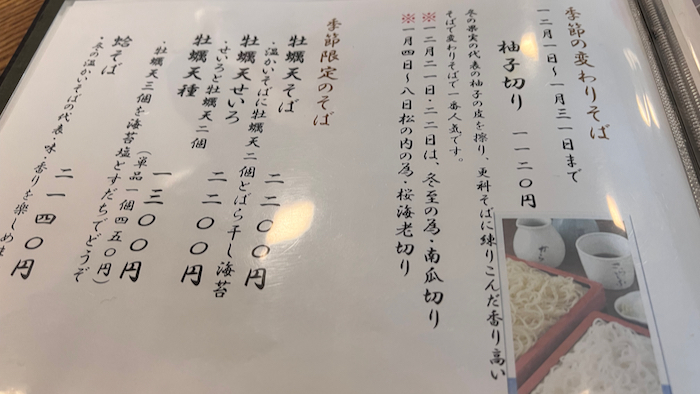 季節の変わりそば
一二月一日～一月三一日まで
柚子切り 一一二〇円
冬の果実の代表の柚子の皮を擦り、更科そばに練りこんだ香り高い
そばで変わりそばで一番人気です。
※一二月二一日・二二日は、冬至の為・南瓜切り
※一月四日～八日松の内の為・桜海老切り
季節限定のそば
牡蠣天そば 二二〇〇円
・温かいそばに牡蠣天二個とばら干し海苔
牡蠣天せいろ 二二〇〇円
・せいろと牡蠣天二個
牡蠣天種 一三〇〇円
・牡蠣天三個を海苔塩とすだちでどうぞ
（単品一個四五〇円）
蛤そば 二一四〇円
・冬の温かいそばの代表・味・香りを楽しめま